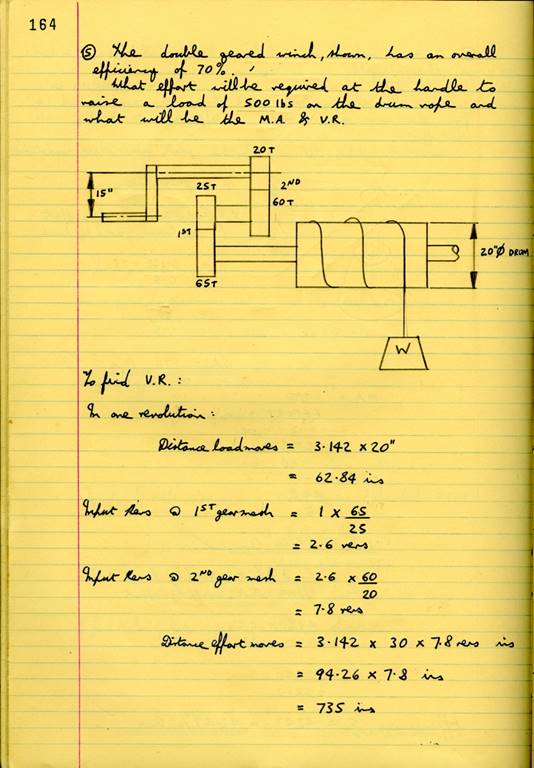 164
⑤ The double geared winch, shown, has an overall
efficiency of 70%.
What effort will be required at the handle to
raise a load of 500 lbs on the drum rope and
what will be the M.A & V.R.
20T
15"
25T
2ND
60T
1ST
20"Ø DRUM
65T
W
To find V.R. :
In one revolution :
Distance load moves = 3.142 x 20"
= 62.84 ins
Input Revs @ 1ST gear mesh = 1 x 65/25
= 2.6 revs
Input Revs @ 2ND gear mesh = 2.6 x 60/20
= 7.8 revs
Distance effort moves = 3.142 x 30 x 7.8 revs ins
= 94.26 x 7.8 ins
= 735 ins